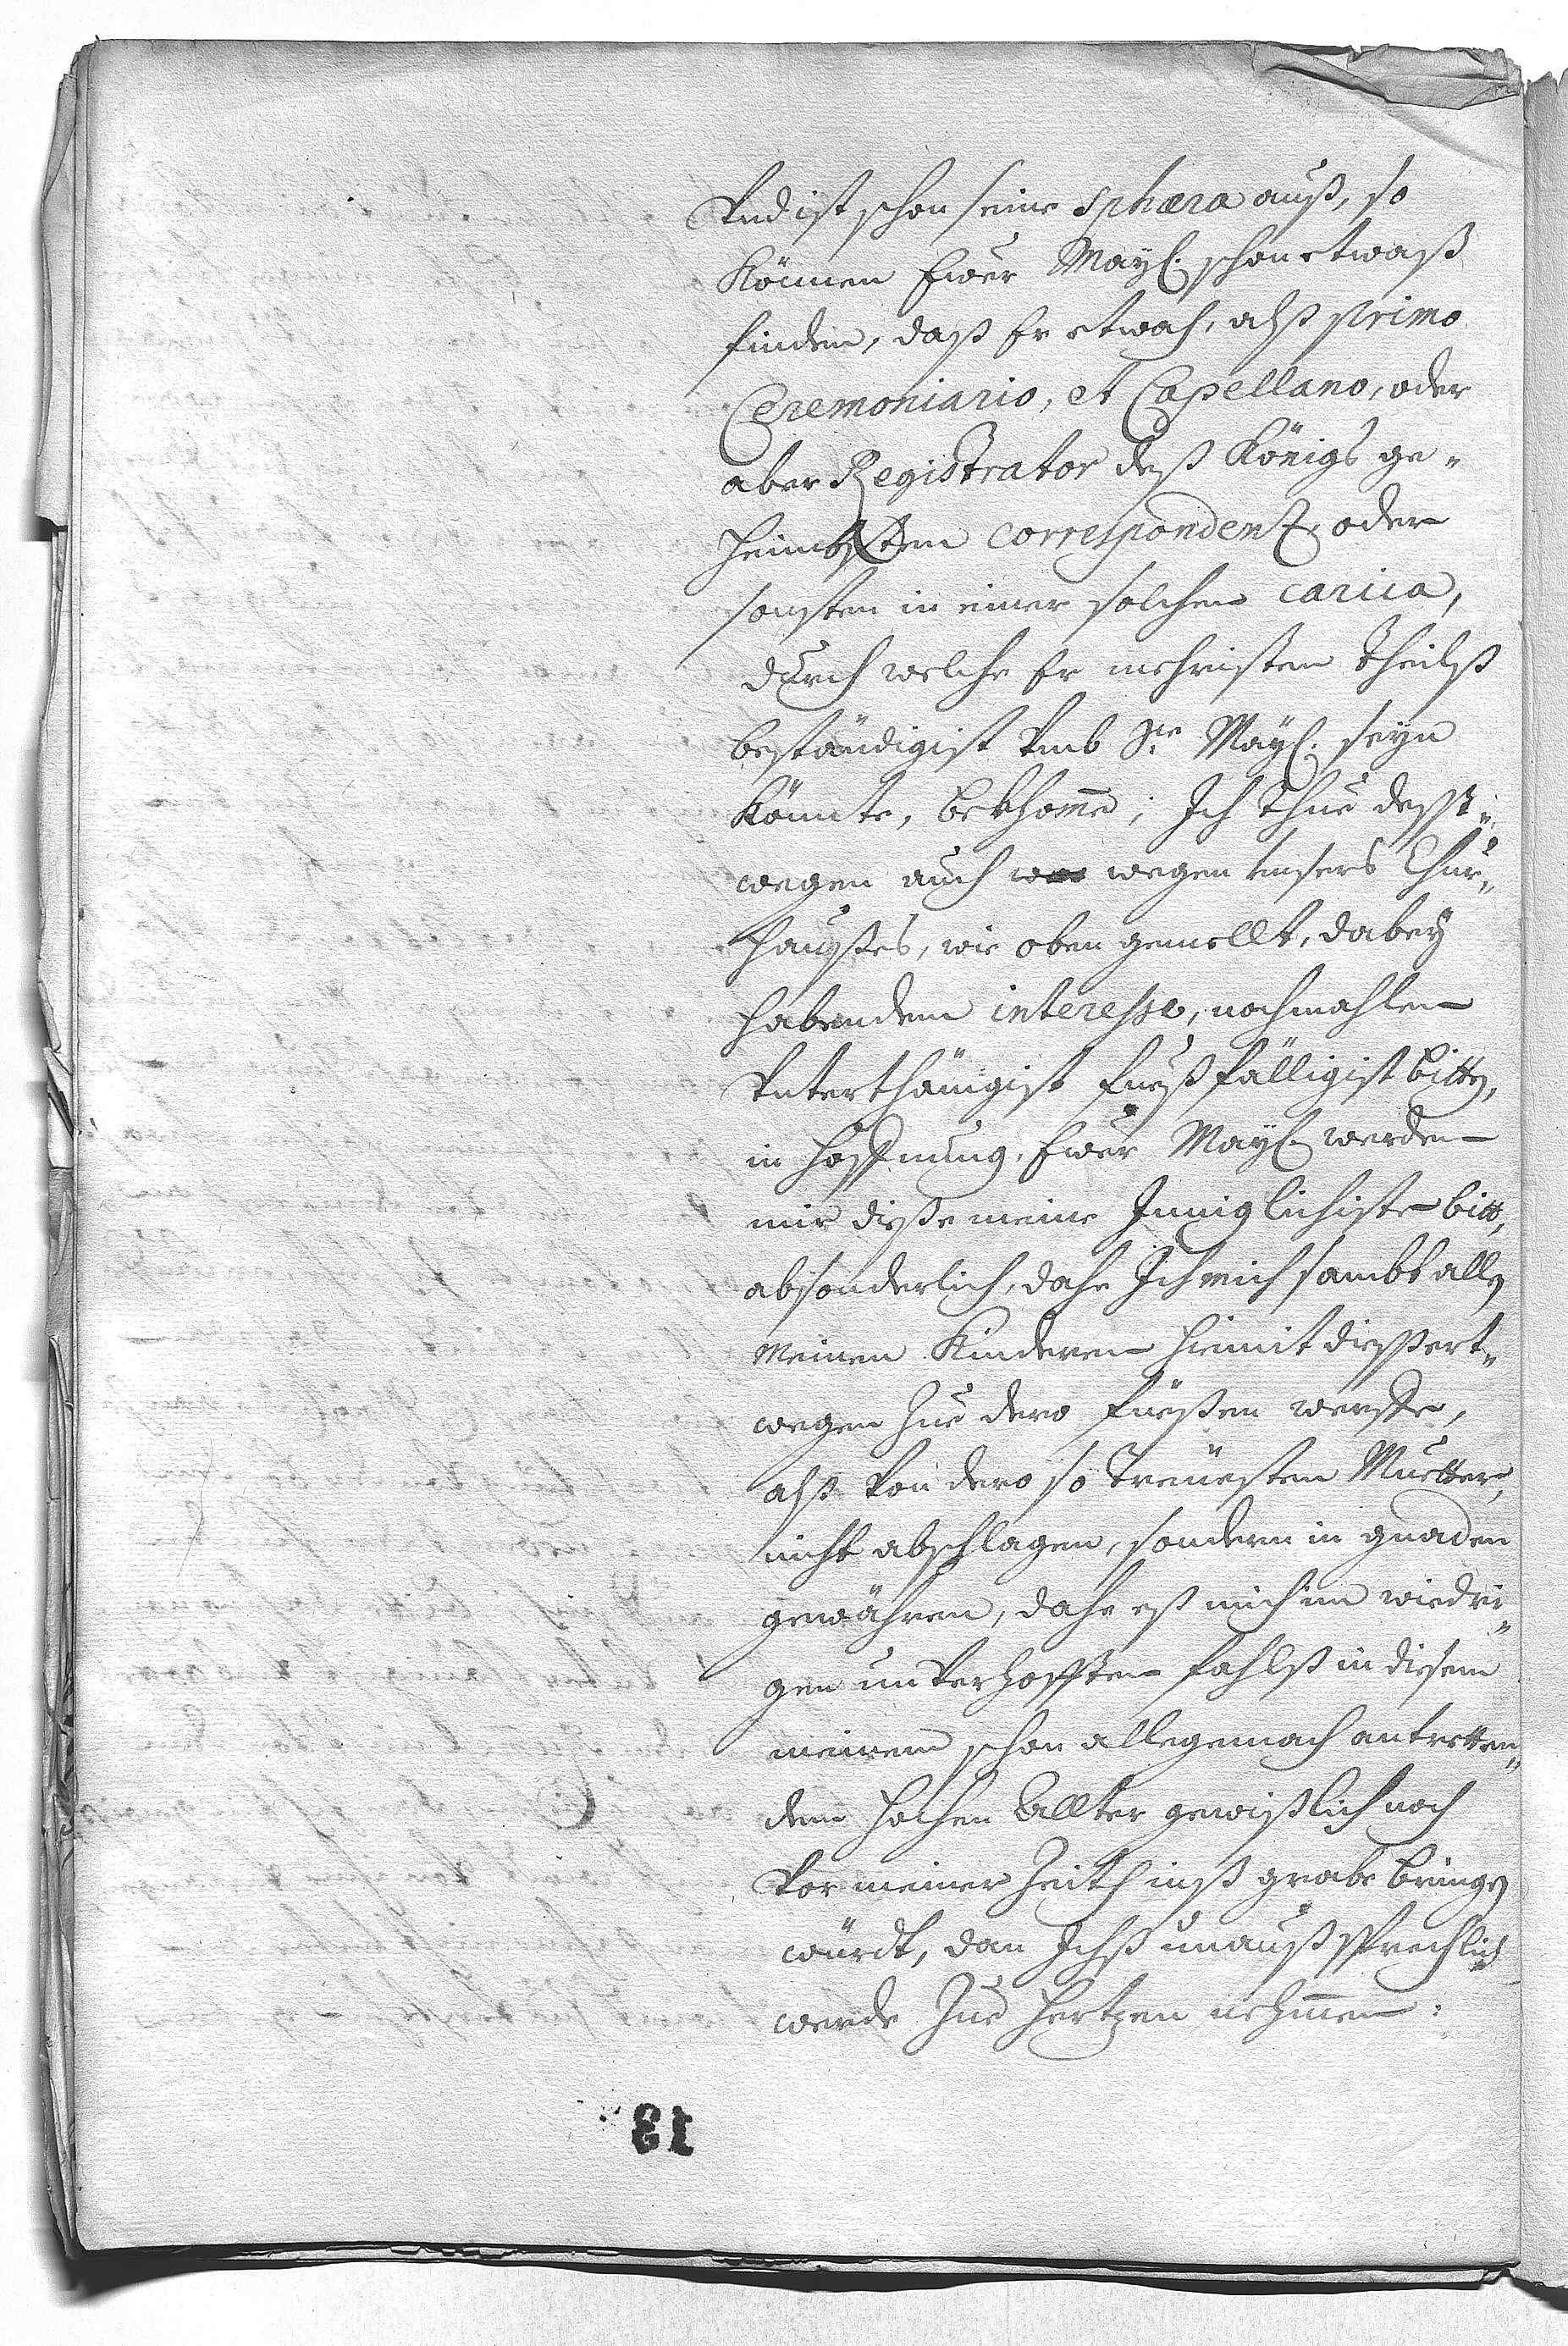 Vnd ist schon seine sphæra auß, so
können Ewer May: schon etwaß
finden, daß Er etwah, alß primo
Ceremoniario, et Capellano, oder
aber Registrator deß Königs ge-
heimbsten correspondenz, oder
sonsten in einer solchen carica,
durch welche Er mehristen Theilß
beständigist Vmb Ire May: seyn
könnte, bekhomme; Ich Thue dessent-
wegen auch wegen unsers Chur-
haußes, wie oben gemellt, dabey
habendem interesse, nochmahlen
Vnterthänigist fueßfälligist bitten,
in hoffnung, Ewer May: werden
mir diße meine Inniglichiste bitt,
absonderlich, dahe Ich mich sambt allen
meinen Kinderen hiemit dießert-
wegen zue dero füeßen werffe,
alß Von dero so Treuesten Muetter,
nicht abschlagen, sondern in gnaden
gewähren, dahe eß mich im wiedri-
gen unVerhofften fahlß in diesem
meinem schon allgemach antretten-
dem hohen Allter gewißlich noch
Vor meiner Zeith inß grabe bringen
würdt, dan Ichß unaußsprechlich
werde Zue Hertzen nehmen:
13